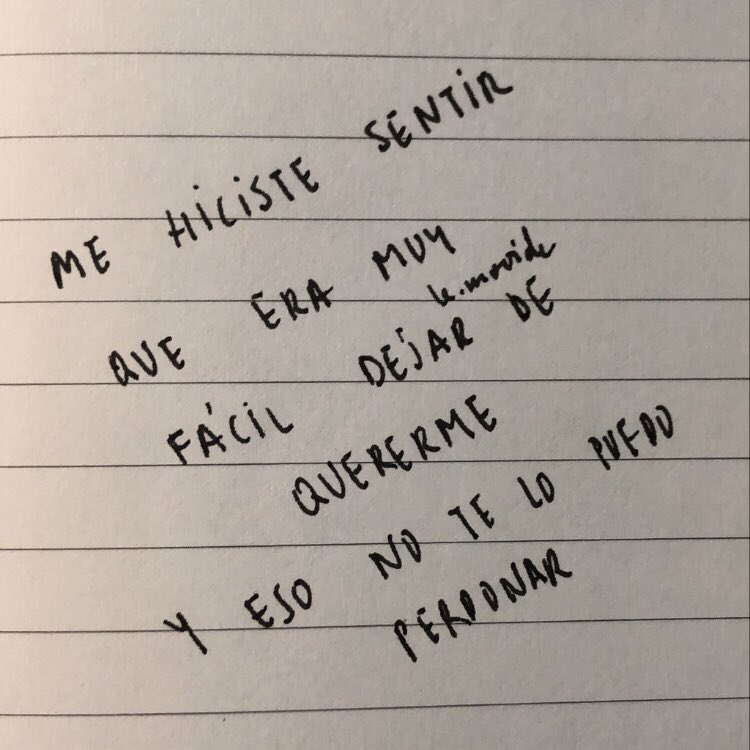 ME HICISTE SENTIR
QUE ERA MUY
le.movide
FÁCIL DEJAR DE
QUERERME
Y ESO NO TE LO PUEDO
PERDONAR